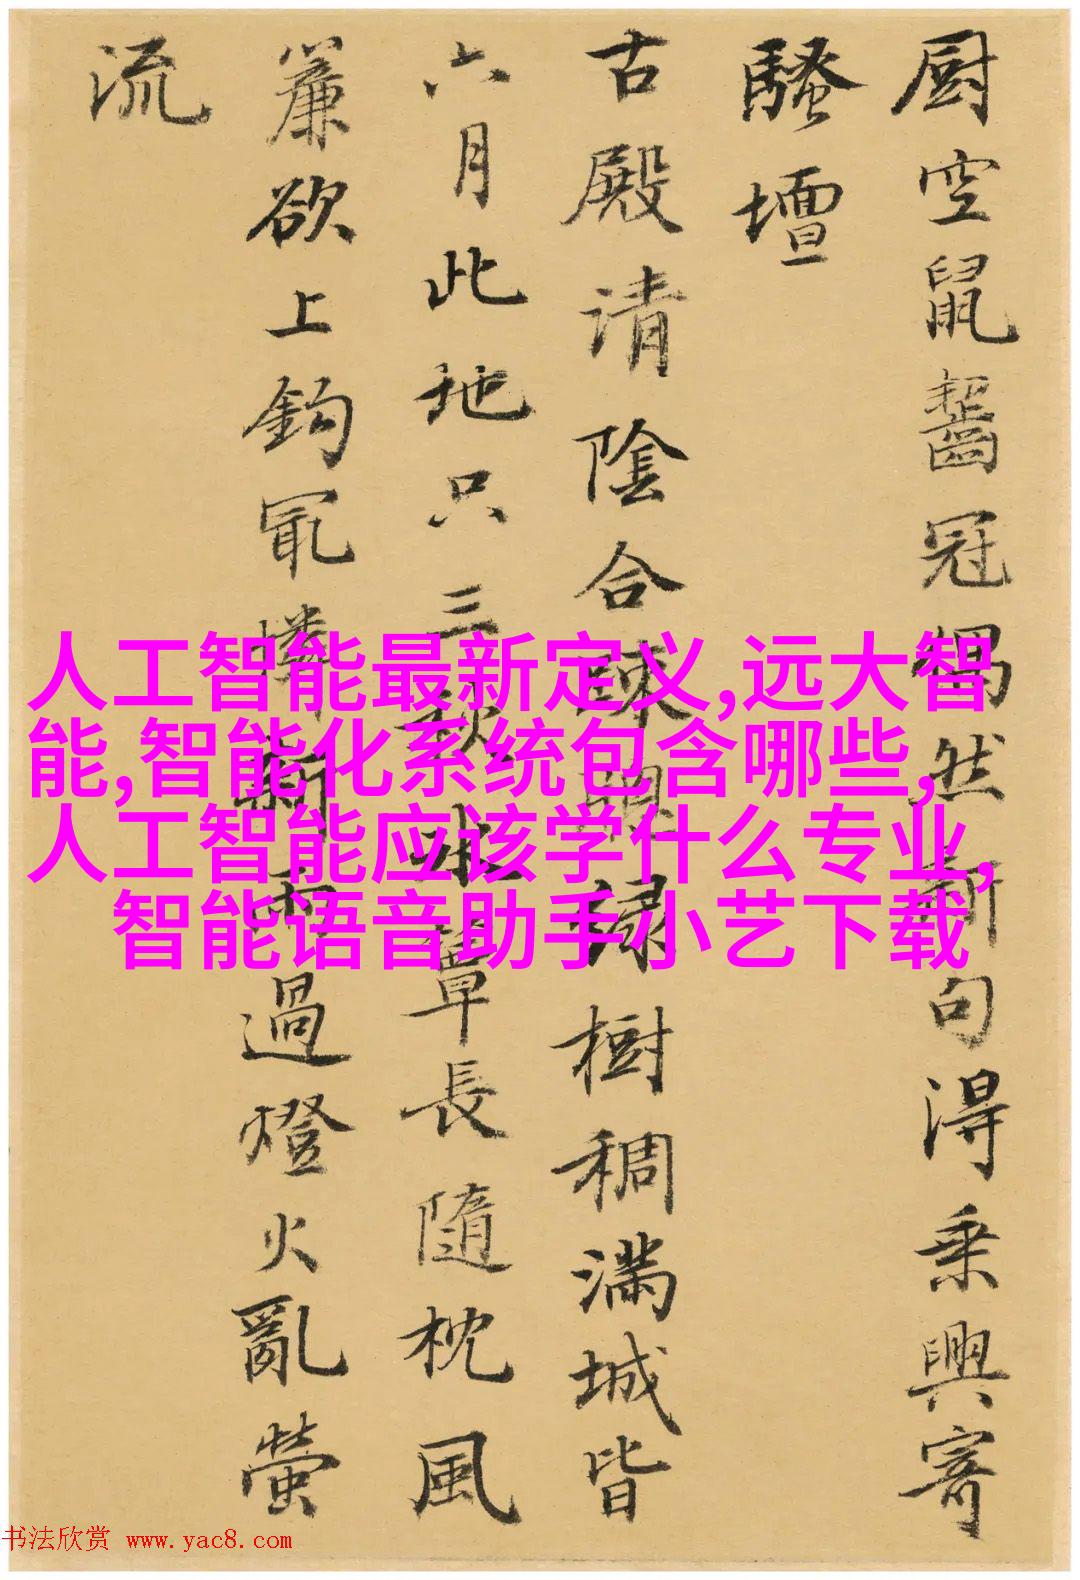 厨空鼠齧冠偶然新句得乘興寄
騷壇
古殿清陰合緑樹稠滿城皆
六月此地只三秋簟長隨枕風
簾欲上鈎最憐新雨過燈火亂螢
流
人工智能最新定义,远大智
能,智能化系统包含哪些,
人工智能应该学什么专业,
智能语音助手小艺下载
书法欣赏 www.yac8.com